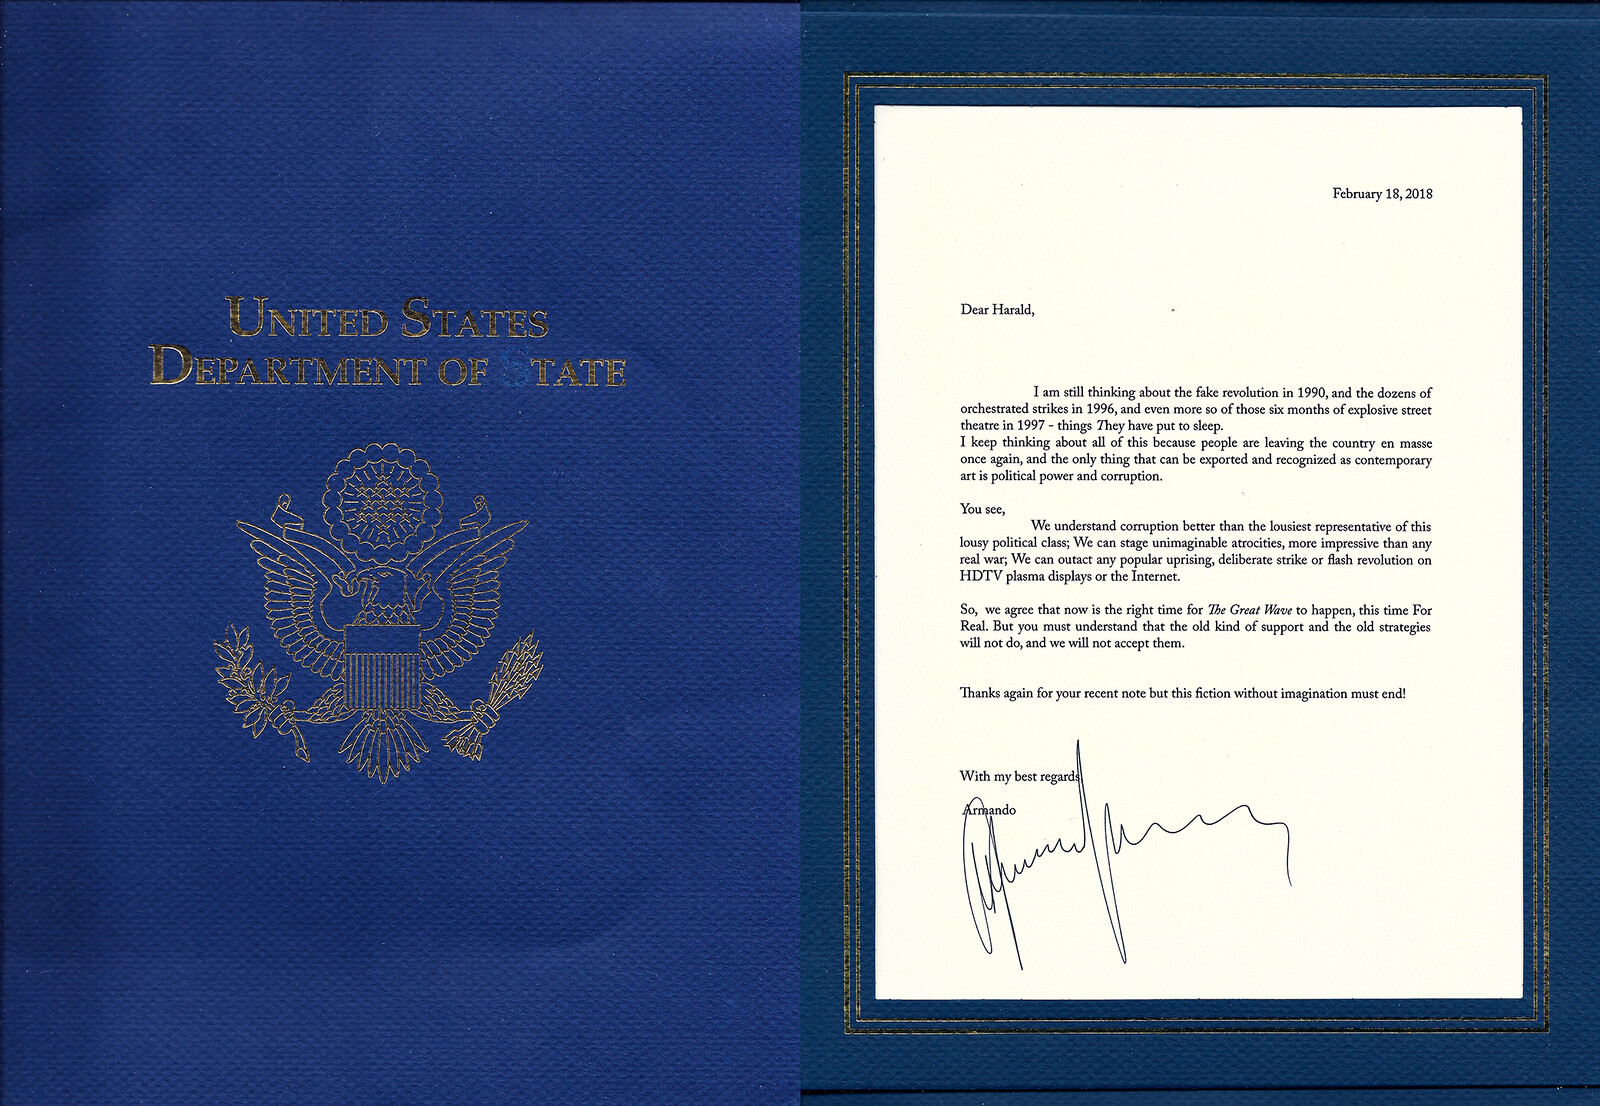 UNITED STATES
DEPARTMENT OF STATE
February 18, 2018
Dear Harald,
I am still thinking about the fake revolution in 1990, and the dozens of
orchestrated strikes in 1996, and even more so of those six months of explosive street
theatre in 1997 - things They have put to sleep.
I keep thinking about all of this because people are leaving the country en masse
once again, and the only thing that can be exported and recognized as contemporary
art is political power and corruption.
You see,
We understand corruption better than the lousiest representative of this
lousy political class; We can stage unimaginable atrocities, more impressive than any
real war; We can outact any popular uprising, deliberate strike or flash revolution on
HDTV plasma displays or the Internet.
So, we agree that now is the right time for The Great Wave to happen, this time For
Real. But you must understand that the old kind of support and the old strategies
will not do, and we will not accept them.
Thanks again for your recent note but this fiction without imagination must end!
With my best regards
Armando